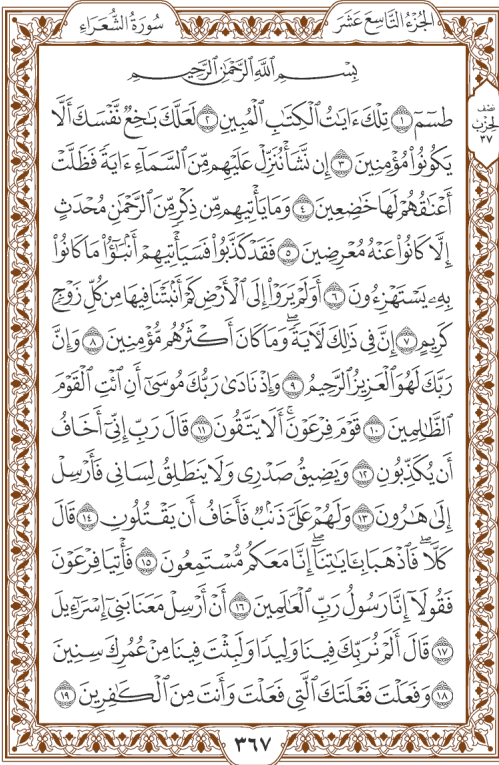 الجُزْءُ التَّاسِعَ عَشَرَ
سُورَةُ الشُّعَرَاءِ
نصف
الحزب
٣٧
بِسْمِ اللَّهِ الرَّحْمَٰنِ الرَّحِيمِ
طسٓمٓ ۝١ تِلْكَ ءَايَٰتُ ٱلْكِتَٰبِ ٱلْمُبِينِ ۝٢ لَعَلَّكَ بَٰخِعٌ نَّفْسَكَ أَلَّا
يَكُونُوا۟ مُؤْمِنِينَ ۝٣ إِن نَّشَأْ نُنَزِّلْ عَلَيْهِم مِّنَ ٱلسَّمَآءِ ءَايَةً فَظَلَّتْ
أَعْنَٰقُهُمْ لَهَا خَٰضِعِينَ ۝٤ وَمَا يَأْتِيهِم مِّن ذِكْرٍ مِّنَ ٱلرَّحْمَٰنِ مُحْدَثٍ
إِلَّا كَانُوا۟ عَنْهُ مُعْرِضِينَ ۝٥ فَقَدْ كَذَّبُوا۟ فَسَيَأْتِيهِمْ أَنۢبَٰٓؤُا۟ مَا كَانُوا۟
بِهِۦ يَسْتَهْزِءُونَ ۝٦ أَوَلَمْ يَرَوْا۟ إِلَى ٱلْأَرْضِ كَمْ أَنۢبَتْنَا فِيهَا مِن كُلِّ زَوْجٍ
كَرِيمٍ ۝٧ إِنَّ فِى ذَٰلِكَ لَءَايَةً ۖ وَمَا كَانَ أَكْثَرُهُم مُّؤْمِنِينَ ۝٨ وَإِنَّ
رَبَّكَ لَهُوَ ٱلْعَزِيزُ ٱلرَّحِيمُ ۝٩ وَإِذْ نَادَىٰ رَبُّكَ مُوسَىٰٓ أَنِ ٱئْتِ ٱلْقَوْمَ
ٱلظَّٰلِمِينَ ۝١٠ قَوْمَ فِرْعَوْنَ ۚ أَلَا يَتَّقُونَ ۝١١ قَالَ رَبِّ إِنِّىٓ أَخَافُ
أَن يُكَذِّبُونِ ۝١٢ وَيَضِيقُ صَدْرِى وَلَا يَنطَلِقُ لِسَانِى فَأَرْسِلْ
إِلَىٰ هَٰرُونَ ۝١٣ وَلَهُمْ عَلَىَّ ذَنۢبٌ فَأَخَافُ أَن يَقْتُلُونِ ۝١٤ قَالَ
كَلَّا ۖ فَٱذْهَبَا بِـَٔايَٰتِنَآ ۖ إِنَّا مَعَكُم مُّسْتَمِعُونَ ۝١٥ فَأْتِيَا فِرْعَوْنَ
فَقُولَآ إِنَّا رَسُولُ رَبِّ ٱلْعَٰلَمِينَ ۝١٦ أَنْ أَرْسِلْ مَعَنَا بَنِىٓ إِسْرَٰٓءِيلَ
۝١٧ قَالَ أَلَمْ نُرَبِّكَ فِينَا وَلِيدًا وَلَبِثْتَ فِينَا مِنْ عُمُرِكَ سِنِينَ
۝١٨ وَفَعَلْتَ فَعْلَتَكَ ٱلَّتِى فَعَلْتَ وَأَنتَ مِنَ ٱلْكَٰفِرِينَ ۝١٩
٣٦٧